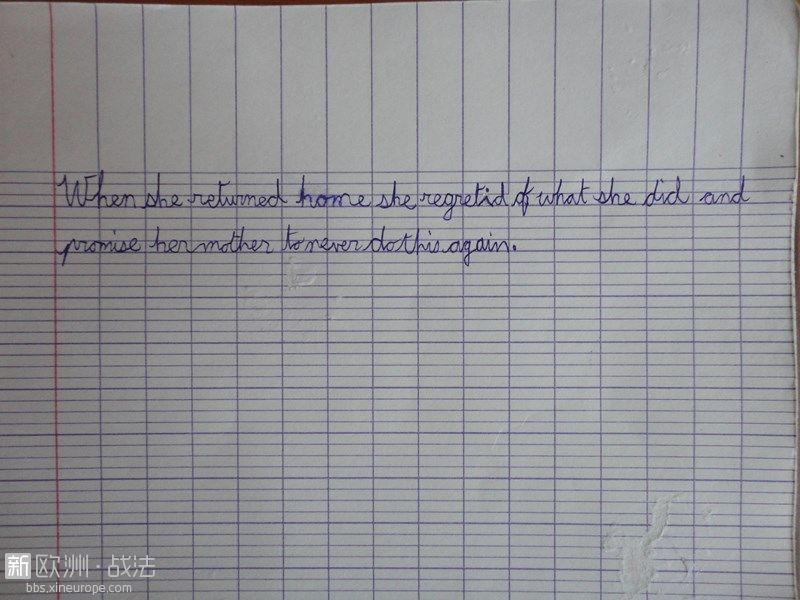 When she returned home she regretid of what she did and
promise her mother to never do this again.
新欧洲·战法
bbs.xineurope.com